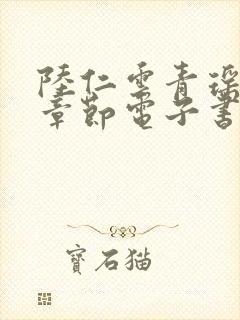 陸仁雲青瑶
章節電子書
寶石猫